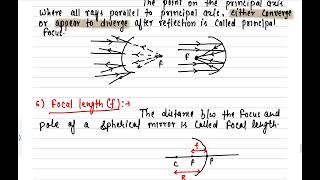 The point on the principal axis
where all rays parallel to principal axis, either converge
or appear to diverge after reflection is called principal
focus.
F
F
6) Focal length (f):→
The distance b/w the focus and
pole of a spherical mirror is called focal length.
f
C F P
R